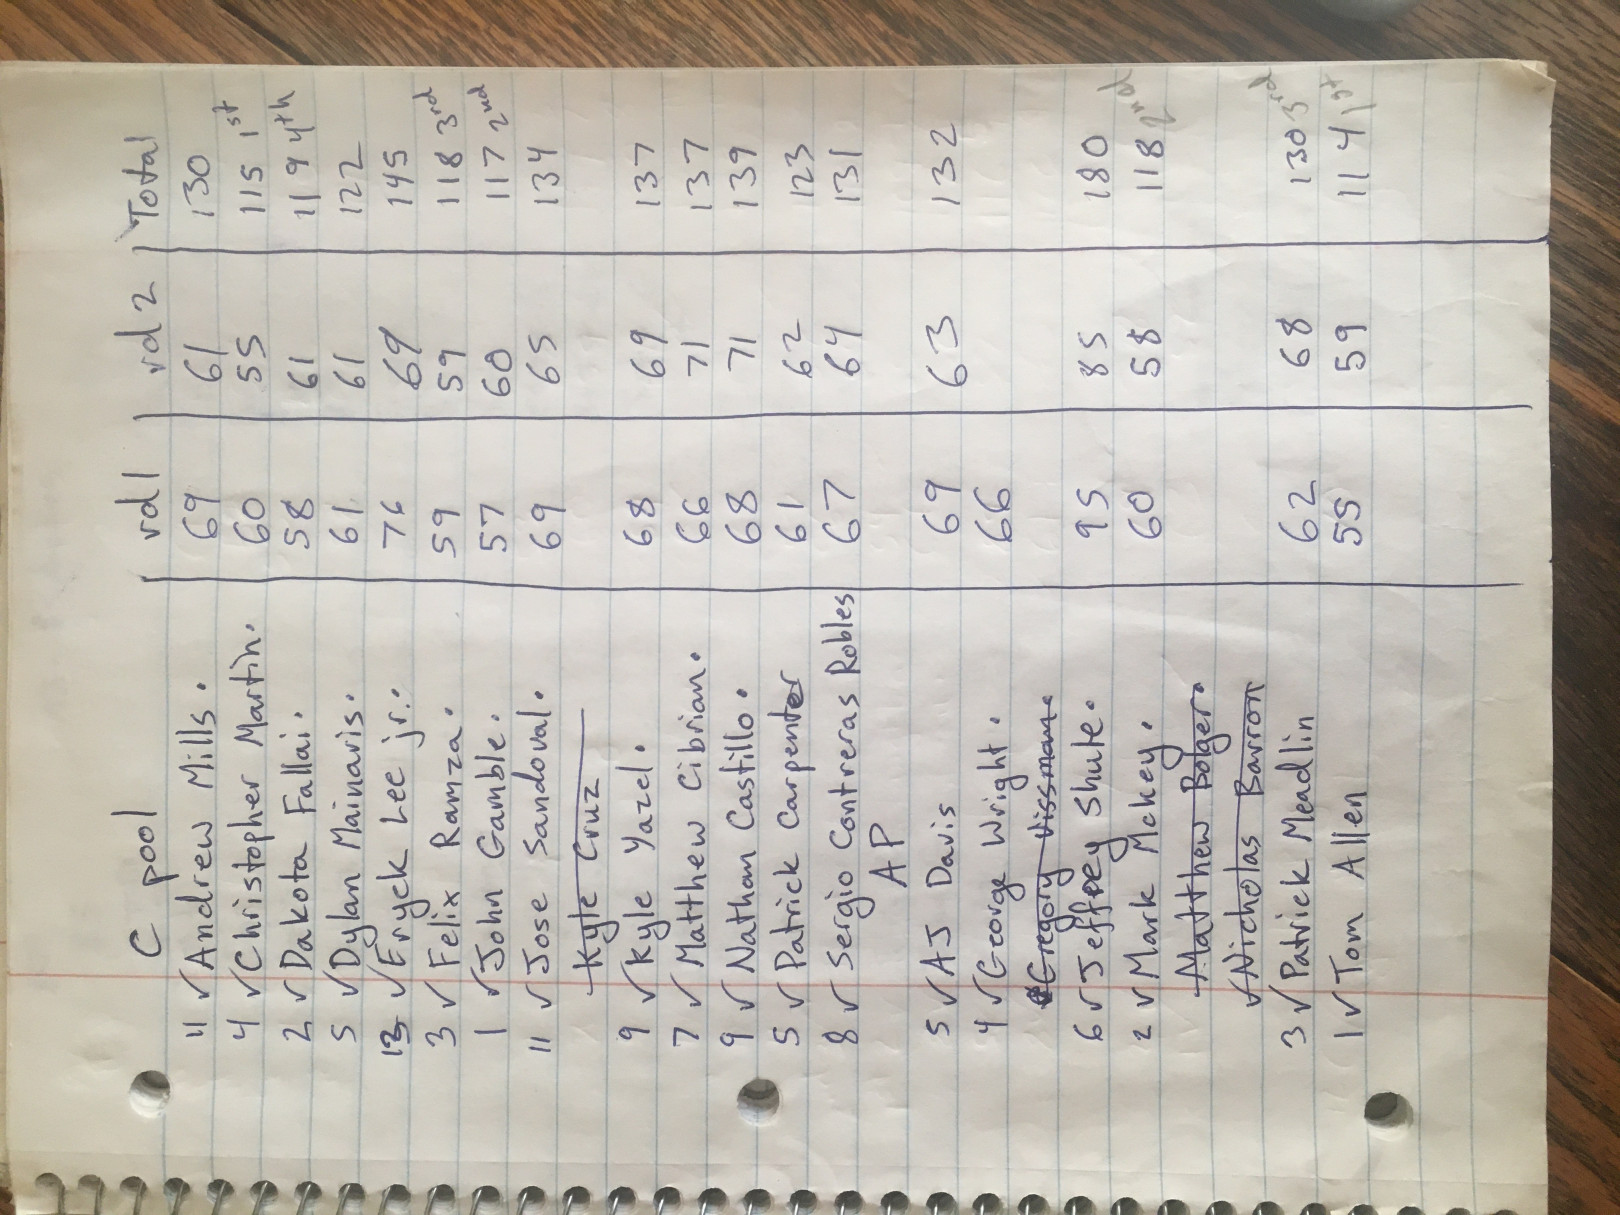 C pool rd 1 rd 2 Total
11 √ Andrew Mills. 69 61 130
4 √ Christopher Martin. 60 55 115 1st
2 √ Dakota Fallai. 58 61 119 4th
5 √ Dylan Mainaris. 61 61 122
13 √ Eryck Lee jr. 76 69 145
3 √ Felix Ramza. 59 59 118 3rd
1 √ John Gamble. 57 60 117 2nd
11 √ Jose Sandoval. 69 65 134
Kyle Cruz
9 √ Kyle Yazel. 68 69 137
7 √ Matthew Cibrian. 66 71 137
9 √ Nathan Castillo. 68 71 139
5 √ Patrick Carpenter 61 62 123
8 √ Sergio Contreras Robles 67 64 131
AP
5 √ AJ Davis 69 63 132
4 √ George Wright. 66
Gregory Vissman.
6 √ Jeffrey Shute. 95 85 180
2 √ Mark Mckey. 60 58 118 2nd
Matthew Bolger.
√ Nicholas Barron
3 √ Patrick Meadlin 62 68 130 3rd
1 √ Tom Allen 55 59 114 1st